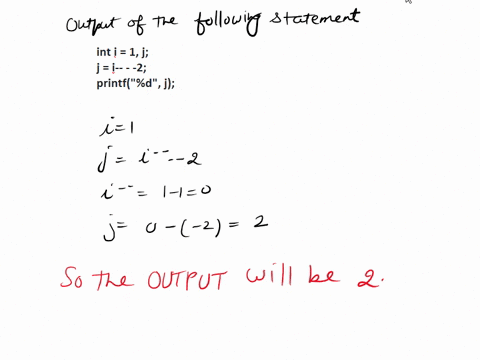 Output of the following statement
int i = 1, j;
j = i-- - -2;
printf("%d", j);
i=1
j= i-- - -2
i-- = 1-1=0
j= 0-(-2) = 2
So the OUTPUT will be 2.